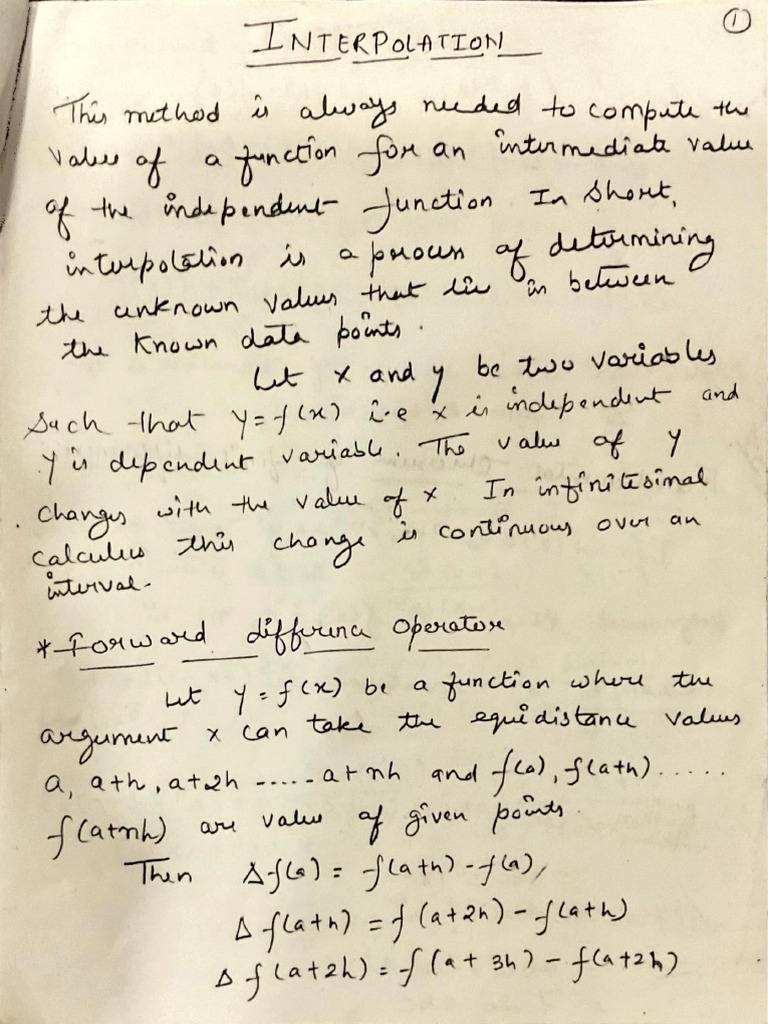 ①
INTERPOLATION
This method is always needed to compute the
value of a function for an intermediate value
of the independent function In short,
interpolation is a process of determining
the unknown values that lie in between
the known data points.
Let x and y be two variables
Such that y = f(x) i.e x is independent and
y is dependent variable. The value of y
changes with the value of x In infinitesimal
calculus this change is continuous over an
interval.
* Forward difference operator
Let y = f(x) be a function where the
argument x can take the equidistance values
a, a+h, a+2h ..... a+nh and f(a), f(a+h) .....
f(a+nh) are value of given points.
Then Δf(a) = f(a+h) - f(a),
Δ f(a+h) = f(a+2h) - f(a+h)
Δ f(a+2h) = f(a+3h) - f(a+2h)